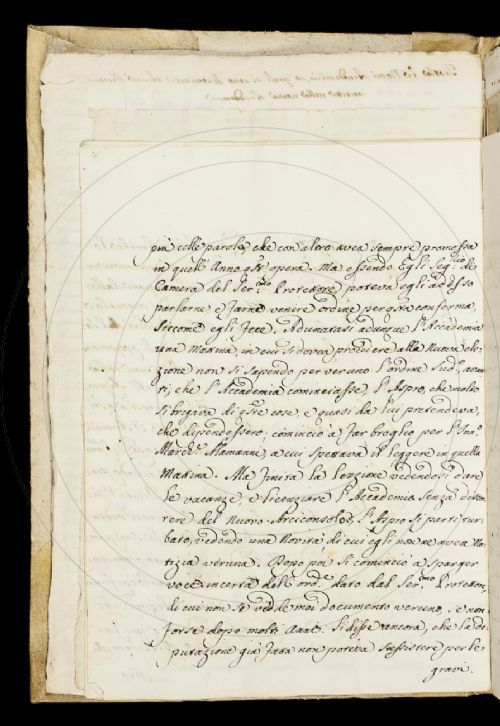 più colle parole, che con altro avea sempre promossa
in quell'Anno q.sta opera. Ma essendo Egli Seg.rio di
Camera del Ser.mo Protettore poteva egli adesso
parlarne e farne venire ordine per q.sta conferma,
siccome egli fece. Adunatasi adunque l'Accademia
una Mattina, in cui si dovea procedere alla nuova ele-
zione non si sapendo per veruno l'ordine sud.o, avan-
ti, che l'Accademia cominciasse, l'Aspro, che molto
si brigava di q.ste cose, e quasi da lui pretendeva,
che dipendessero, cominciò a far broglio per l'Inn.
March.e Alamanni, a cui spettava il leggere in quella
Mattina. Ma finita la lenzione vedendosi dare
le vacanze, e licenziare l'Accademia senza discor-
rere del Nuovo Arciconsolo, l'Aspro si partì tur-
bato, vedendo una Novità di cui egli non ne avea No-
tizia veruna. Dopo poi si cominciò a sparger
voce incerta dell'ord.e dato dal Ser.mo Protettore,
di cui non se vidde mai documento veruno, se non
forse dopo molti Anni. Si disse ancora, che la de-
putazione già fatta non poteva sussistere per le
gravi